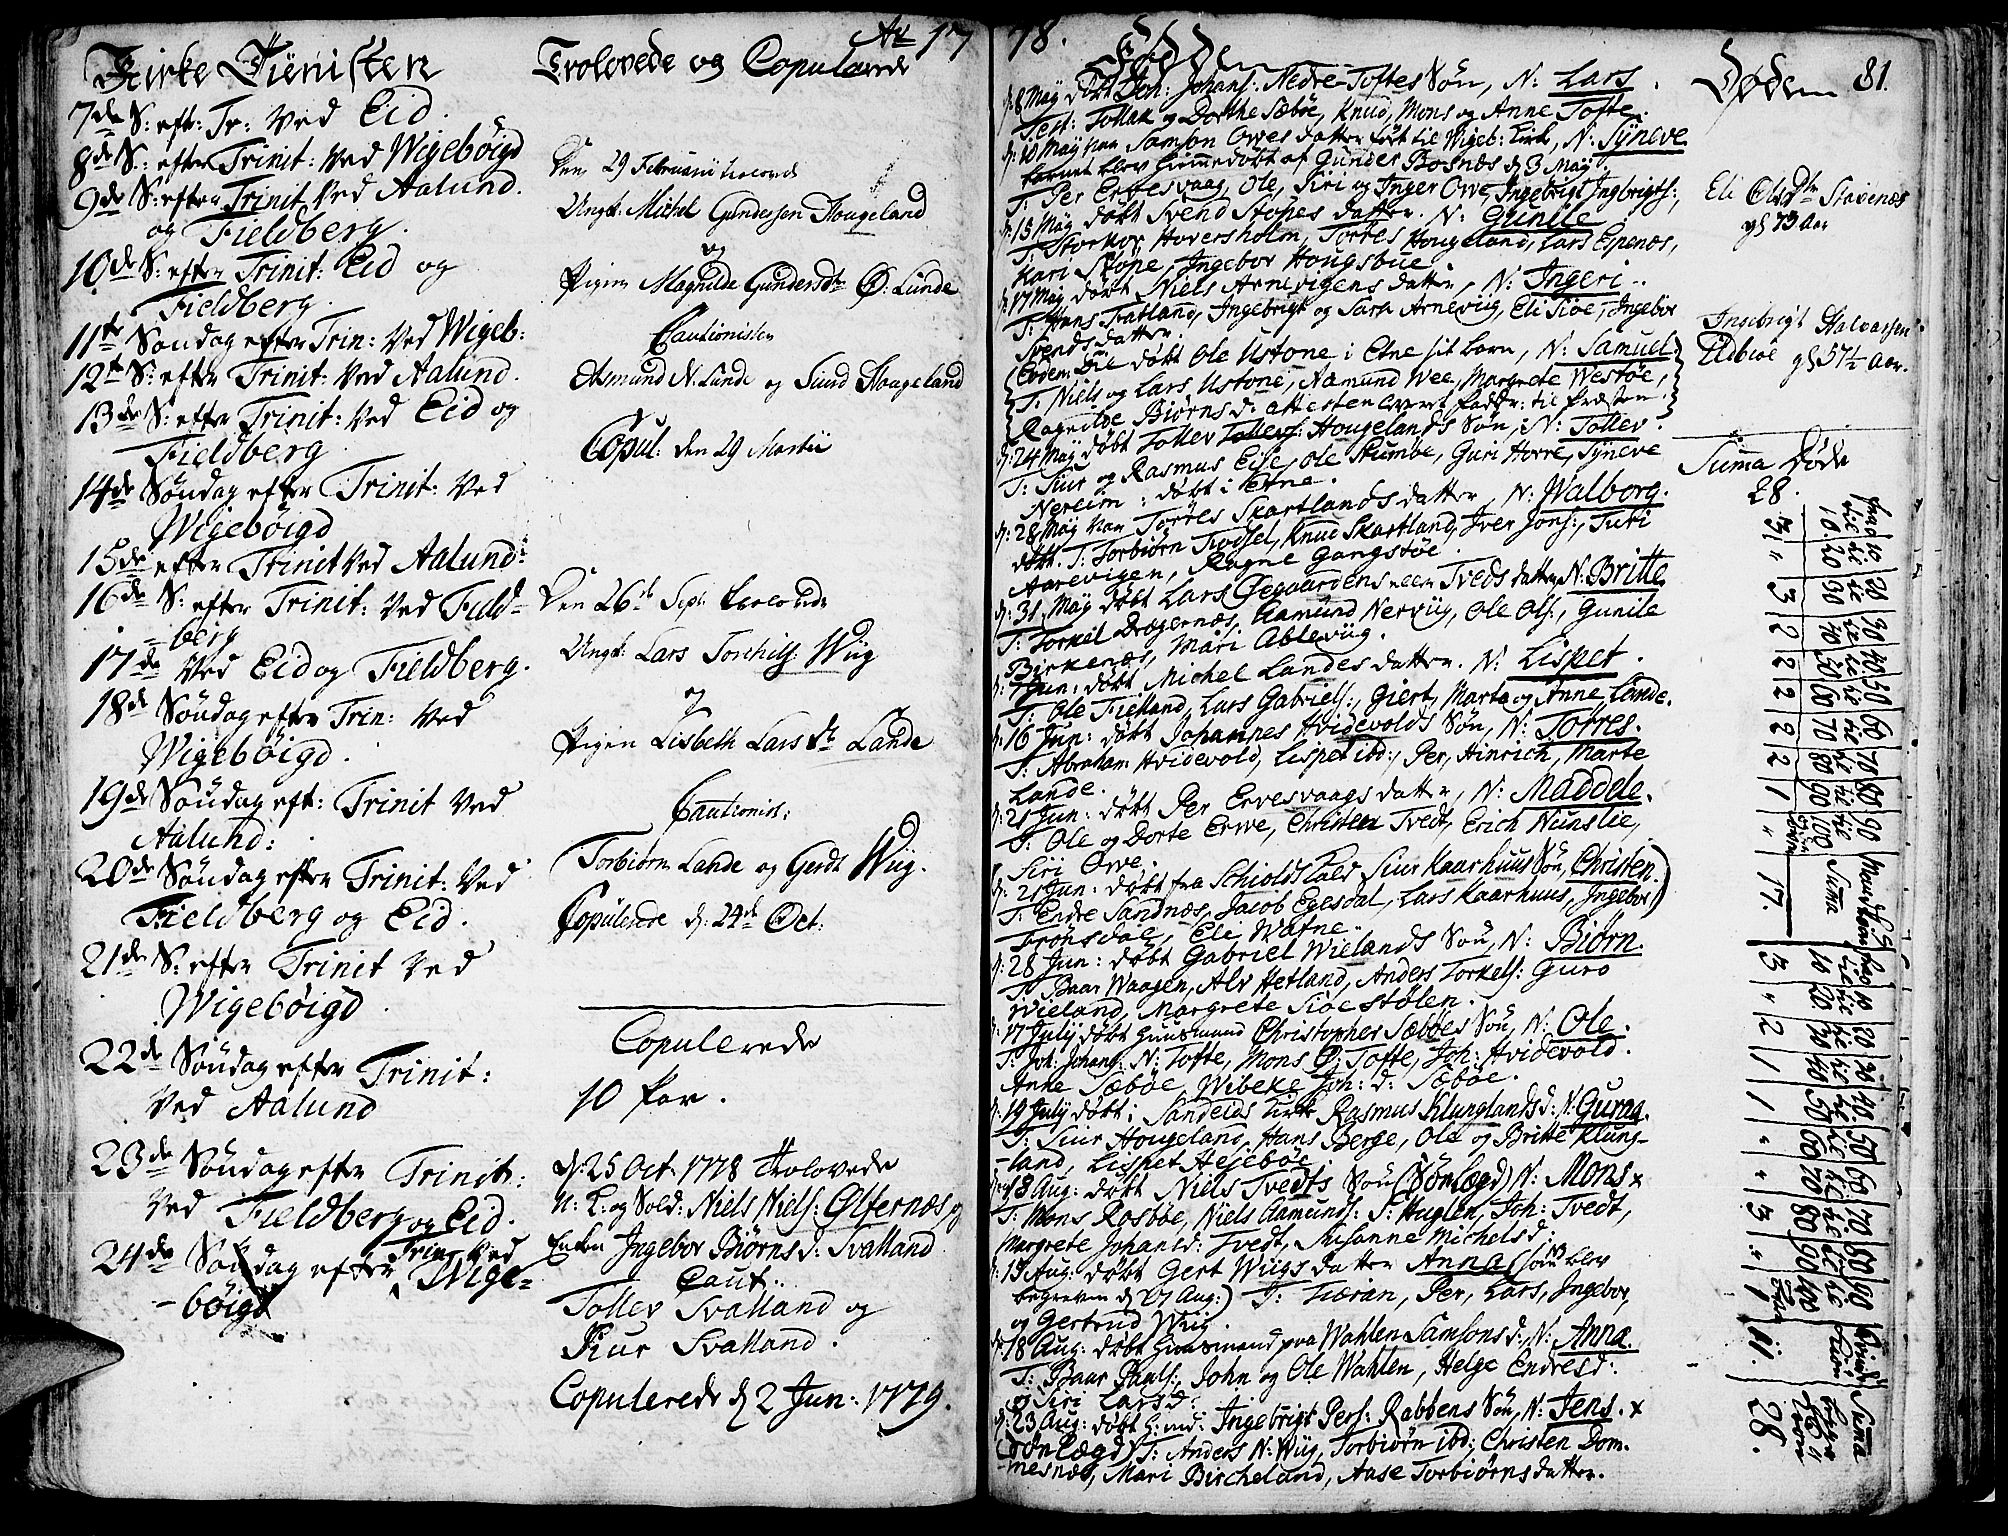 Ao 17
Kirke Tienisten
7de S: eft: Tr: ved Eid.
8de S: efter Trinit: ved Wigebøigd
9de S: efter Trinit ved Aalund.
og Fieldberg.
10de S: efter Trinit: Eid og
Fieldberg.
11te Søndag efter Trin: ved Wigeb:
12te S: efter Trinit: ved Aalund.
13de S: efter Trinit: ved Eid og
Fieldberg
14de Søndag efter Trinit: ved
Wigebøigd
15de efter Trinit ved Aalund:
16de S: efter Trinit: ved Field-
berg
17de ved Eid og Fieldberg.
18de Søndag efter Trin: ved
Wigebøigd.
19de Søndag eft: Trinit ved
Aalund:
20de Søndag efter Trinit: ved
Fieldberg og Eid.
21de S: efter Trinit ved
Wigebøigd
22de Søndag efter Trinit:
ved Aalund
23de Søndag efter Trinit:
ved Fieldberg og Eid.
24de Søndag efter Trin: ved
Wige-
bøigd
Trolovede og Copulerede
Den 29 Februarii trolovede
Ungk: Michel Gundersen Hougeland
og
Pigen Magnilde Gundersdtr Ø: Lunde
Cautionisten
Asmund N: Lunde og Siurd Hougeland
Copul: den 29 Martii
Den 26de Sept: trolovede
Ungk: Lars Torchils: Wiig
og
Pigen Lisbeth Larsdtr Lande
Cautionist:
Torbiørn Lande og Gerdt Wiig.
Copulerede d: 24de Oct:
Copulerede
10 Par.
d: 25 Oct: 1778 trolovede
U: K: og Sold: Niels Niels: Ølfernæs, og
Enken Ingebor Biørns d: Svalland
Caut:
Tollev Svalland og
Siur Svalland.
Copulerede d: 2 Jun: 1779.
78.
Fødde
d: 8 Maÿ døbt Joh: Johans: Nedre-Toftes Søn, N: Lars.
Test: Tollak og Dorthe Sæbøe, Knud, Mons og Anne Tofte.
d: 10 Maÿ var Samson Owes datter ført til Wigeb: Kirke, N: Sÿneve
barnet blev hiemmedøbt af Gunder Bosnæs d: 3 Maÿ
T: Per Ervesvaag, Ole, Siri og Inger Owe, Ingebrigt Ingbrigts:,
d: 15 Maÿ døbt Svend Stopes datter. N: Gunile
T: Storkor Hoversholm, Torres Hougeland, Lars Espenæs,
Kari Stope, Ingebor Hougsbue.
d: 17 Maÿ døbt Niels Arnevigens datter, N: Ingeri.
T: Hans Tratland, Ingebrigt og Sara Arneviig, Eli Siøe, Ingebor
Svends datter.
Eodem Die døbt Ole Ustone i Etne sit barn, N: Samuel.
T: Niels og Lars Ustone, Aamund Wee, Margrete Westøe,
Ragnilde Biørns d: attesten levert Faddr: til Præsten.
d: 24 Maÿ døbt Tollev Tollevs: Hougelands Søn, N: Tollev.
T: Siur og Rasmus Eile, Ole Skumbøe, Guri Horre, Sÿneve
Nereim: døbt i Etne.
d: 28 Maÿ var Torres Skartlands datter, N: Walborg.
døbt. T: Torbiørn Trodsel, Knud Skartland, Iver Jons:, Turi
Aarevigen, Ragne Gangstøe.
d: 31 Maÿ døbt Lars Øegaardens eller Tveds datter N: Britte
T: Torkel Dragernæs, Aamund Nerviig, Ole Ols:, Gunile
Birkenæs, Mari Ableviig.
d: 7 Jun: døbt Michel Landes datter. N: Lispet.
T: Ole Fielland, Lars Gabriels:, Giert, Marta og Anne Lande.
d: 16 Jun: døbt Johannes Hvidevolds Søn, N: Torres.
T: Abraham Hvidevold, Lispet ibd:, Per, Hinrich, Marte
Lande.
d: 21 Jun: døbt Per Ervesvaags datter, N: Maddele.
T: Ole og Dorte Erwe, Christen Tvedt, Erich Nunslie,
Siri Owe.
d: 21 Jun: døbt fra Schiolds Kald Siur Kaarhuus Søn, Christen.
T: Endre Sandnæs, Jacob Egesdal, Lars Kaarhuus, Ingebor
Frønsdal, Eli Watne.
d: 28 Jun: døbt Gabriel Wielands Søn, N: Biørn.
T: Baar Waagen, Alv Hetland, Anders Torkels: Guro
Wieland, Margrete Siøe Stølen.
d: 17 Julÿ døbt Huusmand Christopher Sæbøes Søn, N: Ole.
T: Joh: Johans: N: Tofte, Mons Ø: Tofte, Joh: Hvidevold.
Anne Sæbøe, Wibeke Joh: d: Sæbøe.
d: 19 Julÿ døbt i Sandeids Kirke Rasmus Klunglands d: N: Guroa.
T: Siur Hougeland, Hans Berge, Ole og Britte Klung-
-land, Lispet Hejebøe.
d: 13 Aug: døbt Niels Tvedts Søn (Sønlægd) N: Mons x
T: Mons Rosbøe, Niels Aamunds: S: Huglen, Joh: Tvedt,
Margrete Johans d: Tvedt, Susanne Michels d:
d: 15 Aug: døbt Gert Wiigs datter Anna (som blev
begraven d: Aug:) T: Tieran, Per, Lars, Ingebor,
og Gertrud Wiig.
d: 18 Aug: døbt Huusmand paa Wahlen Samsons d:, N: Anna.
T: Baar Pauls:, John og Ole Wahlen, Helge Endres d:
og Siri Lars d:
d: 23 Aug: døbt H:md: Ingebrigt Pers: Rabbens Søn, N: Jens. x
(Sønlægd) T: Anders N: Wiig, Torbiørn ibd: Christen Dom-
mesnæs, Mari Bircheland, Aase Torbiørns datter.
Døde
81.
Eli Olsdtr Stavenæs
gl 73 Aar
Ingebrigt Halvarsen
Udbiøe gl 57½ Aar.
Summa Døde
28.
fra 0 10. 20 30 40 50 60 70 80 90 Mandkiøn
til til til til til til til til til til
10. 20 30 40 50 60 70 80 90 100 Summa
3 " 3 2 2 2 2 2 1 " 17.
fra 0 10 20 30 40. 50 60 70 80 90 Qvindek:
10 20 30 40 50 60 70 80 90 100
3 " 2 1 1 " " 3 " 1 11.
Summa
28.